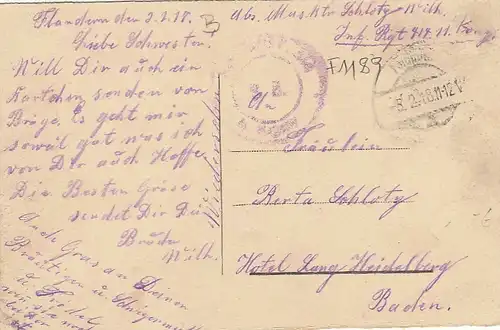 Flandern den 2.2.18.
Liebe Schwester.
Will Dir auch ein
Kärtchen senden von
Brüge. Es geht mir
soweit gut was ich
von Dir auch Hoffe.
Die Besten Grüse
sendet Dir Dein
Bruder
Wilh.
Auch Grus an Deinen
Bräutigam u. Schwiegermutter
Wiedersehen
B
Abs. Musktr Schloty Wilh.
Inf. Rgt 414. 11. Komp.
FM89
5.2.18.11-12V
An
Fräulein
Berta Schloty
Hotel Lang Heidelberg
Baden.